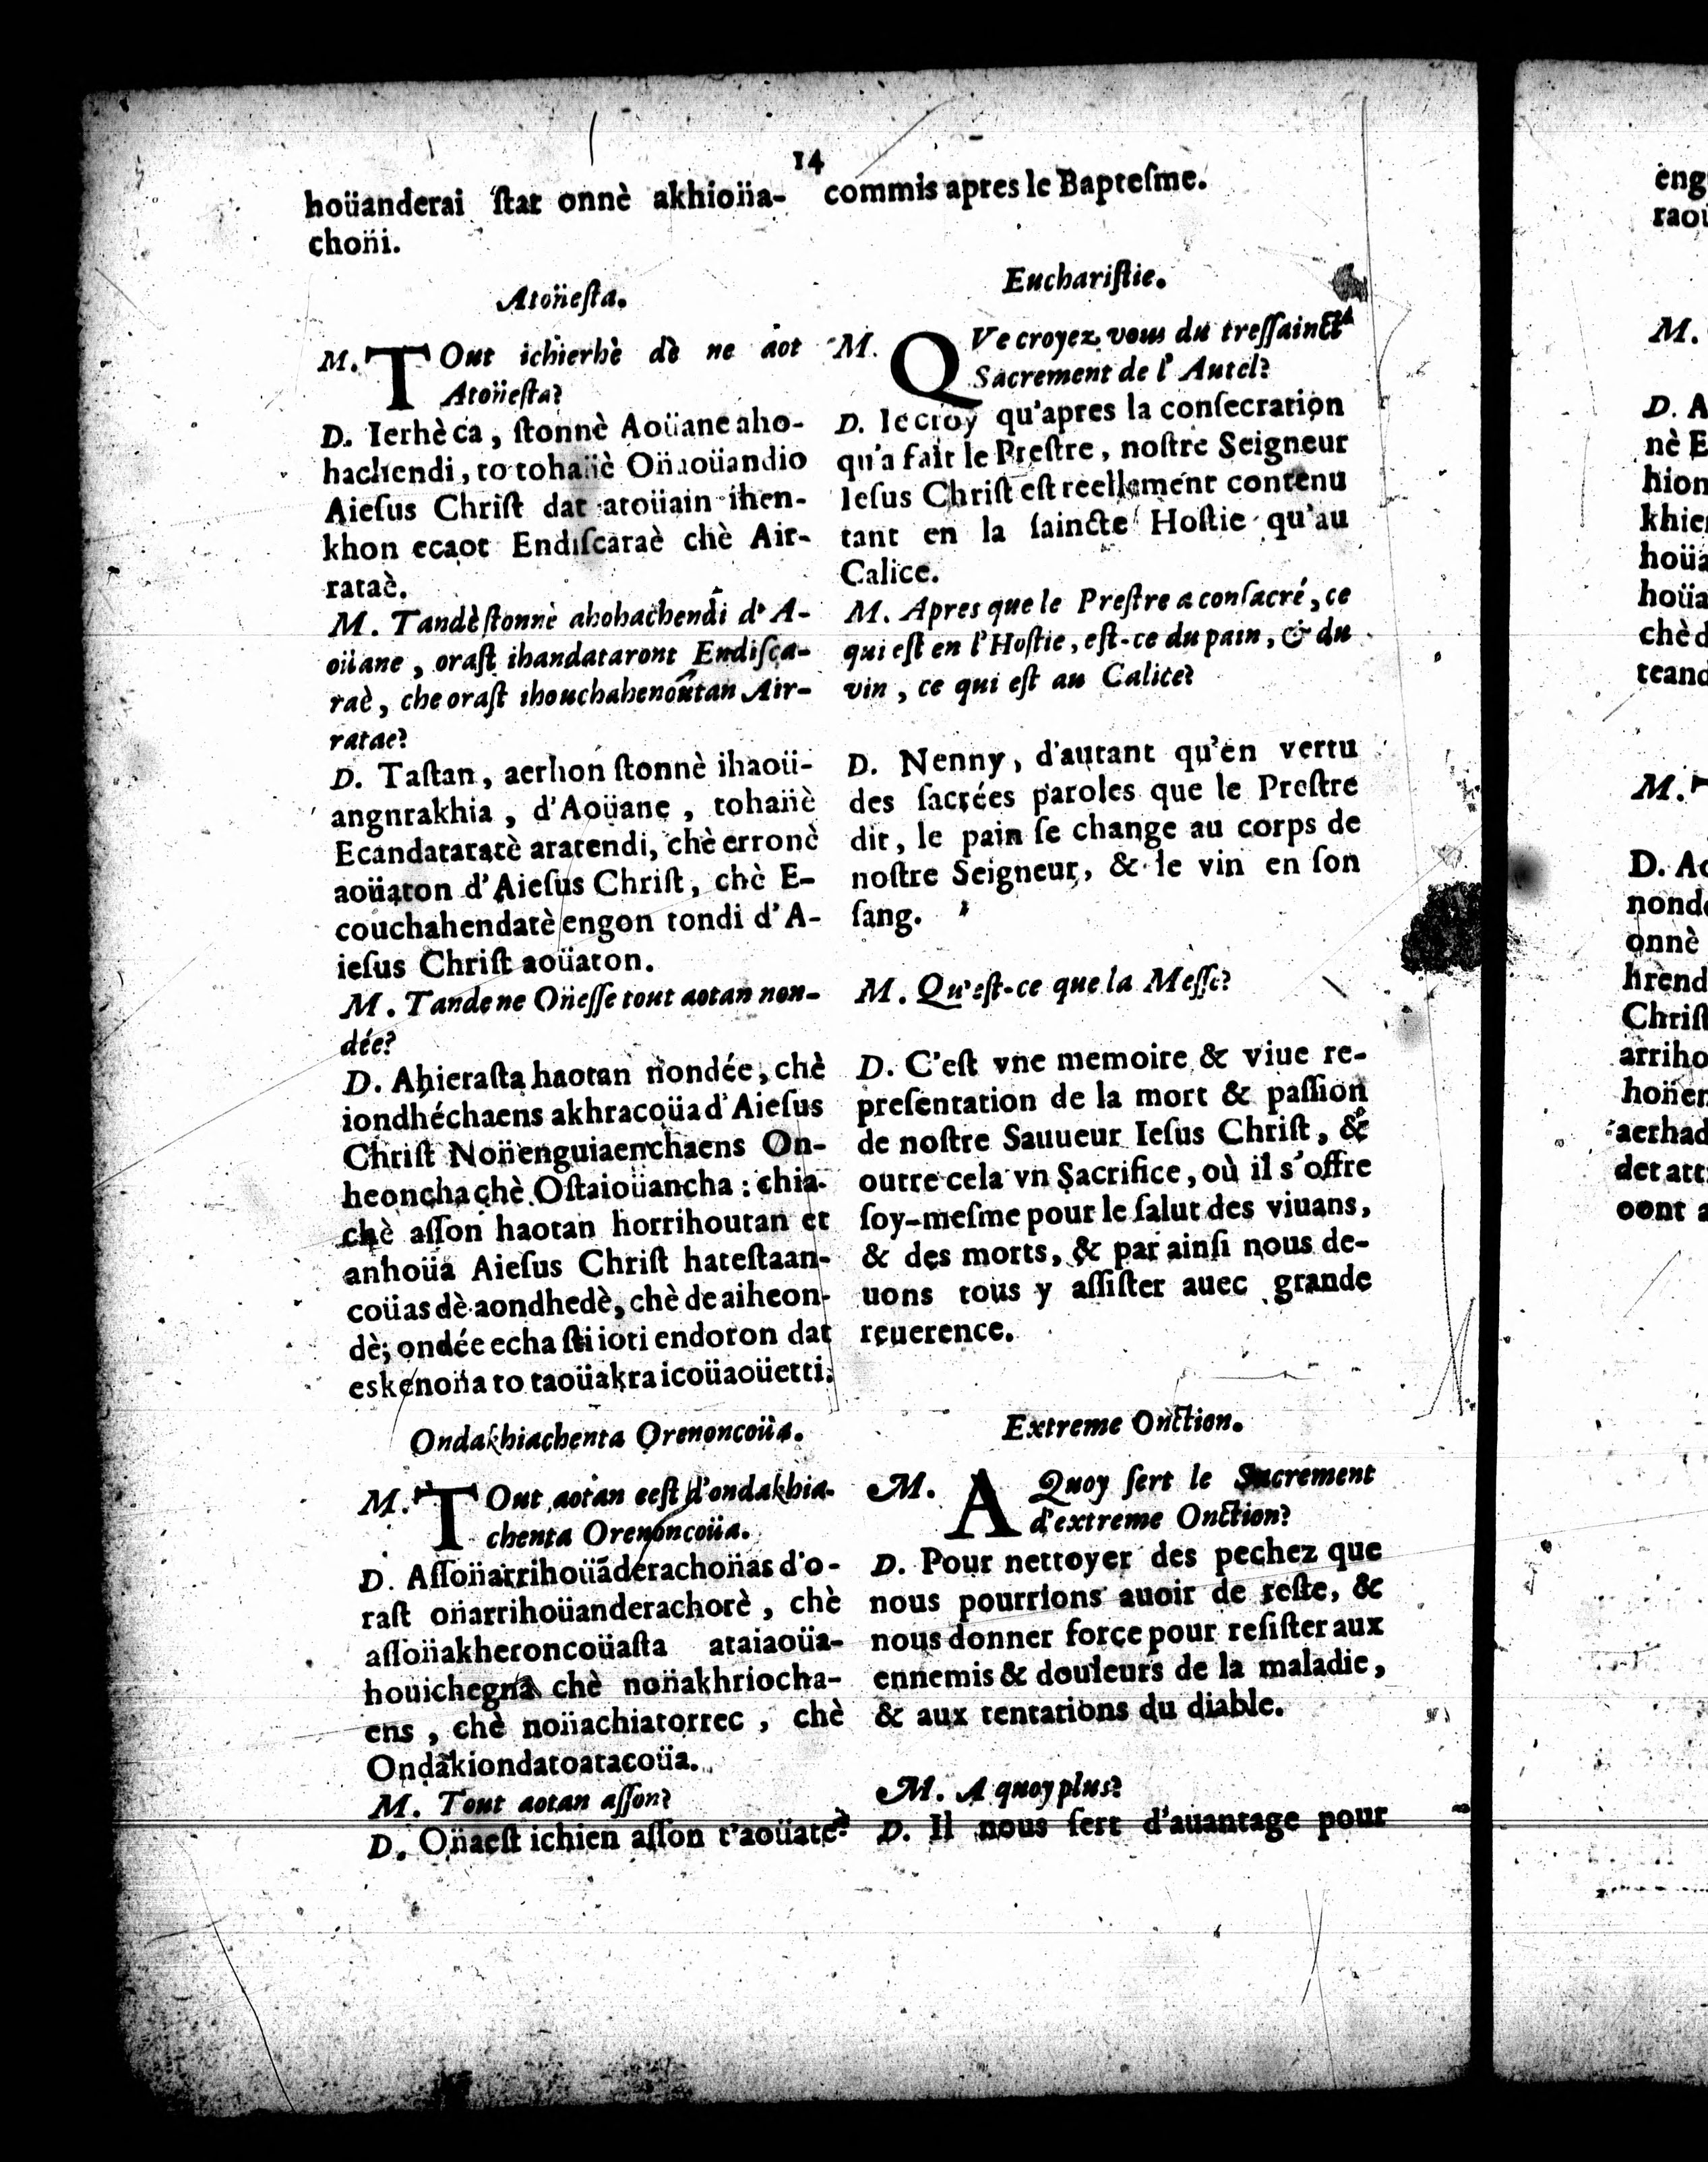 14
hoüanderai ſtat onnè akhioüa-
choñi.
Atoñeſta.
M. TOut ichierhè dè ne aot
Atoñeſta?
D. Ierhè ca, ſtonnè Aoüane aho-
hachendi, to tohañè Oñaoüandio
Aieſus Chriſt dat atoüain ihen-
khon ecaot Endiſcaraè chè Air-
rataè.
M. Tandè ſtonnè ahohachendi d'A-
oüane, oraſt ihandataront Endiſca-
raè, che oraſt ihouchahenoûtan Air-
ratae?
D. Taſtan, aerhon ſtonnè ihaoü-
angnrakhia, d'Aoüane, tohañè
Ecandataratè aratendi, chè erronè
aoüaton d'Aieſus Chriſt, chè E-
couchahendatè engon tondi d'A-
ieſus Chriſt aoüaton.
M. Tande ne Oñeſſe tout aotan non-
dée?
D. Ahieraſta haotan nondée, chè
iondhéchaens akhracoüa d'Aieſus
Chriſt Noñenguiaenchaens On-
heoncha chè Oſtaioüancha: chia-
chè aſſon haotan horrihoutan et
anhoüa Aieſus Chriſt hateſtaan-
coüas dè aondhedè, chè de aiheon-
dè; ondée echa ſti ioti endoron dat
eskenoña to taoüakta icoüaoüetti.
Ondakhiachenta Orenoncoüa.
M. TOut aotan eeſt d'ondakhia-
chenta Orenoncoüa.
D. Aſſoñarrihoüãderachoñas d'o-
raſt oñarrihoüanderachorè, chè
aſſoñakheroncoüaſta ataiaoüa-
houichegna chè noñakhriocha-
ens, chè noñachiatorrec, chè
Ondakiondatoatacoüa.
M. Tout aotan aſſon?
D. Oñaeſt ichien aſſon t'aoüate-
commis apres le Bapteſme.
Euchariſtie.
M. QVe croyez vous du treſſainct
Sacrement de l'Autel?
D. Ie croy qu'apres la conſecration
qu'a fait le Preſtre, noſtre Seigneur
Ieſus Chriſt eſt reellement contenu
tant en la ſaincte Hoſtie qu'au
Calice.
M. Apres que le Preſtre a conſacré, ce
qui eſt en l'Hoſtie, eſt-ce du pain, & du
vin, ce qui eſt au Calice?
D. Nenny, d'autant qu'en vertu
des ſacrées paroles que le Preſtre
dit, le pain ſe change au corps de
noſtre Seigneur, & le vin en ſon
ſang.
M. Qu'eſt-ce que la Meſſe?
D. C'eſt vne memoire & viue re-
preſentation de la mort & paſſion
de noſtre Sauueur Ieſus Chriſt, &
outre cela vn Sacrifice, où il s'offre
ſoy-meſme pour le ſalut des viuans,
& des morts, & par ainſi nous de-
uons tous y aſſiſter auec grande
reuerence.
Extreme Onction.
M. A Quoy ſert le Sacrement
d'extreme Onction?
D. Pour nettoyer des pechez que
nous pourrions auoir de reſte, &
nous donner force pour reſiſter aux
ennemis & douleurs de la maladie,
& aux tentations du diable.
M. A quoy plus?
D. Il nous ſert d'auantage pour
eng
raoü
M.
D. A
nè E
hion
khie
hoüa
hoüa
chè d
teand
M.
D. Ac
nond
onnè
hrend
Chriſt
arriho
hoñer
aerhad
det att
oont a